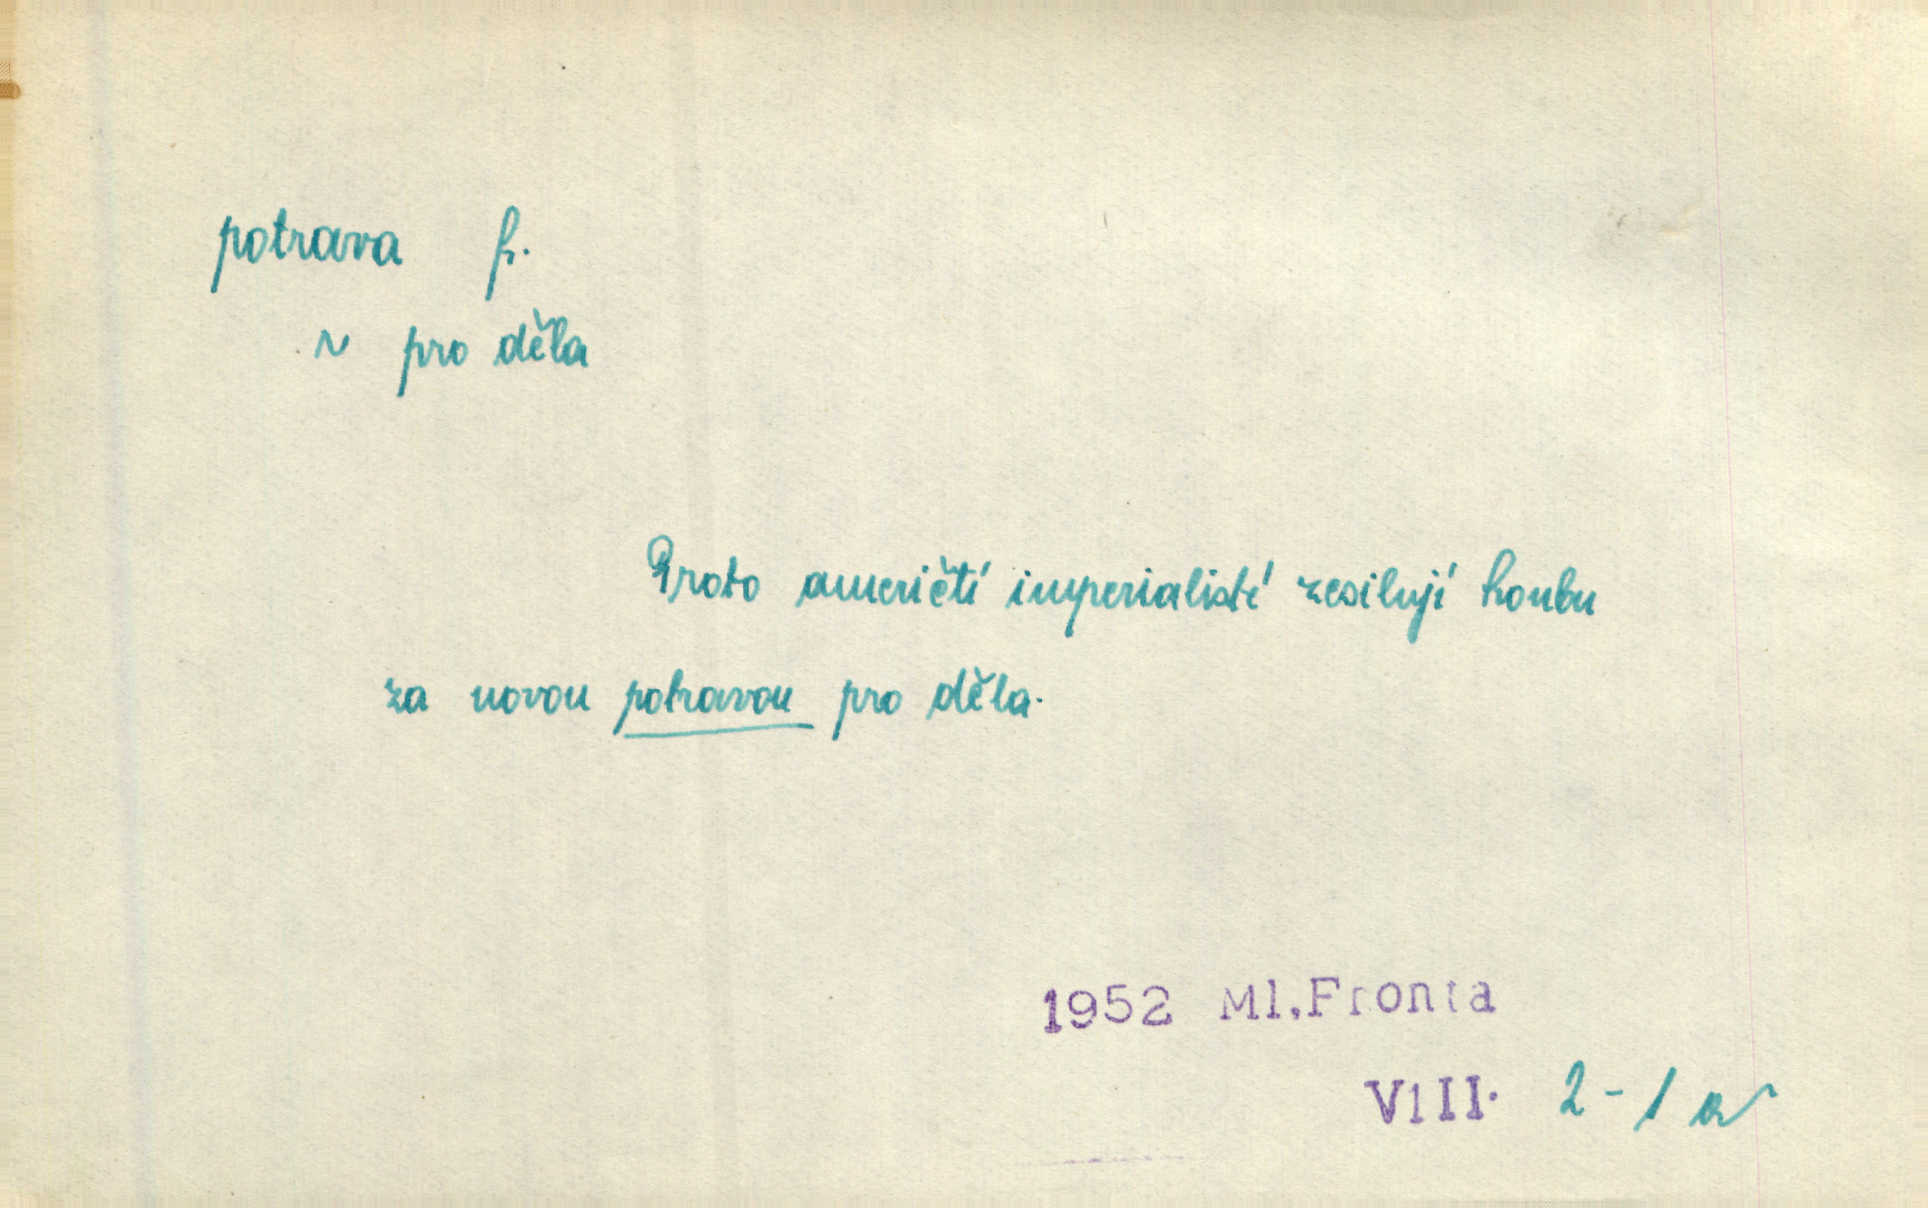 potrava f.
~ pro děla
Proto američtí imperialisté zesilují honbu
za novou potravou pro děla.
1952 Ml.Fronta
VIII. 2-1 a